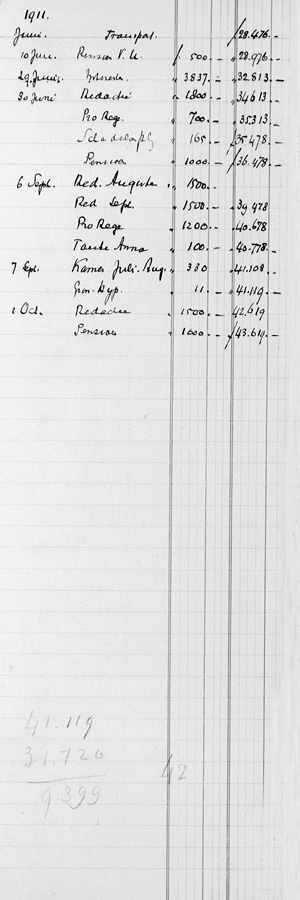 1911.
Juni. Transport. ƒ28.476.-
10 Juni. Pension V. U. ƒ 500.- „28.976.-
29 Juni. Interesten. „ 3837.- „32.813.-
30 Juni Redactie „ 1800.- „34613.-
Pro Rege. „ 700.- „35313.-
Schadelossteg „ 165.- ƒ35.478.-
Pension „ 1000.- ƒ36.478.-
6 Sept. Red. Augustus „ 1500.-
Red Sept. „ 1500.- „39.478
Pro Rege „ 1200.- „40.678
Tante Anna „ 100.- „40.778.-
7 Sept. Kamer Juli-Aug. „ 330 „41.108.-
Gron. Hyp. „ 11.- „41.119.-
1 Oct. Redactie „ 1500.- „42.619
Pension „ 1000.- „43.619.-
41.119
31.720
9.399
42